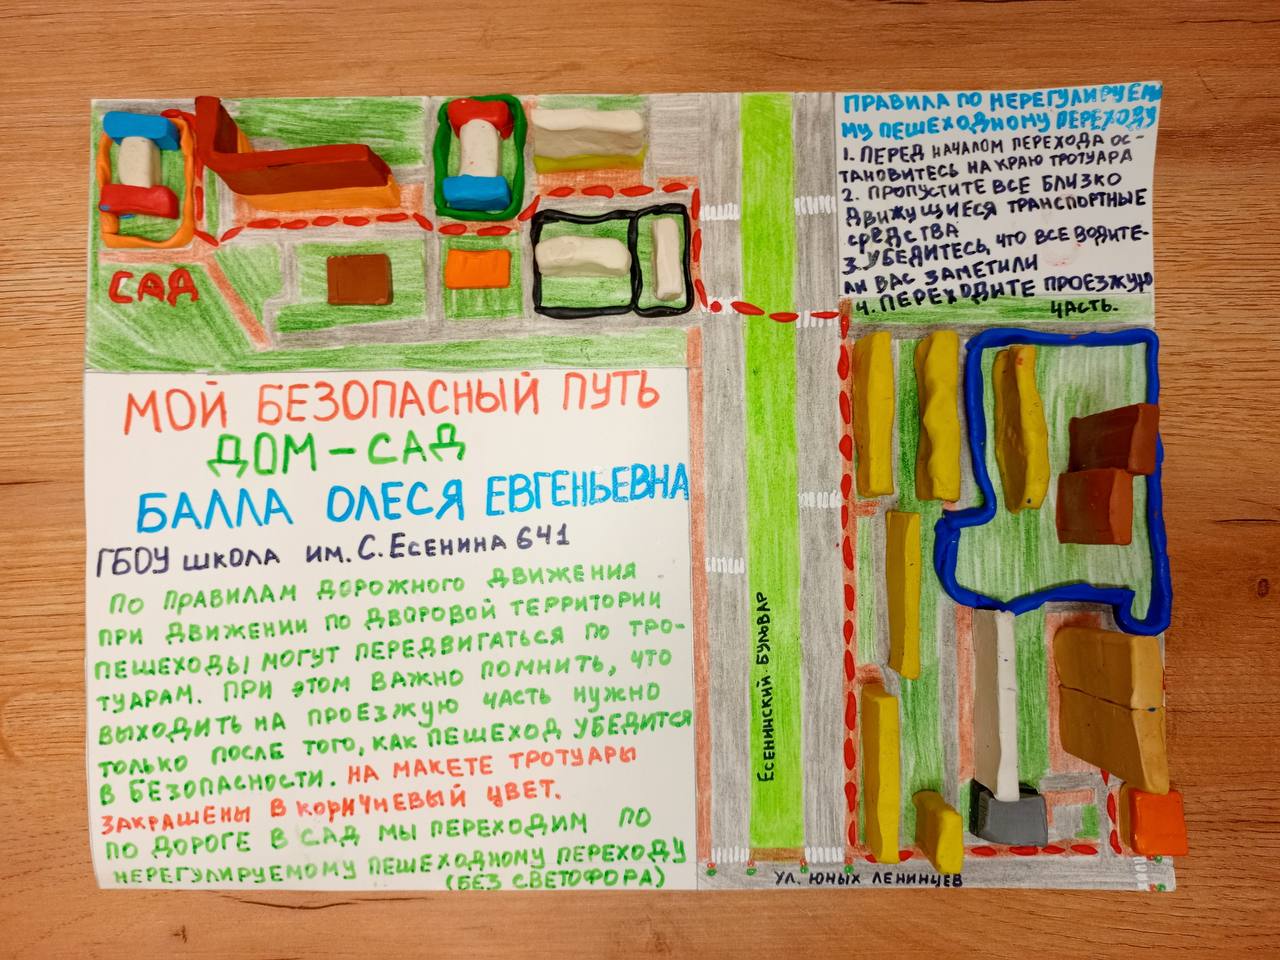 ПРАВИЛА ПО НЕРЕГУЛИРУЕМО
МУ ПЕШЕХОДНОМУ ПЕРЕХОДУ
1. ПЕРЕД НАЧАЛОМ ПЕРЕХОДА ОС-
ТАНОВИТЕСЬ НА КРАЮ ТРОТУАРА
2. ПРОПУСТИТЕ ВСЕ БЛИЗКО
ДВИЖУЩИЕСЯ ТРАНСПОРТНЫЕ
СРЕДСТВА
3. УБЕДИТЕСЬ, ЧТО ВСЕ ВОДИТЕ-
ЛИ ВАС ЗАМЕТИЛИ
4. ПЕРЕХОДИТЕ ПРОЕЗЖУЮ
ЧАСТЬ.
САД
МОЙ БЕЗОПАСНЫЙ ПУТЬ
ДОМ – САД
БАЛЛА ОЛЕСЯ ЕВГЕНЬЕВНА
ГБОУ ШКОЛА ИМ. С. ЕСЕНИНА 641
ПО ПРАВИЛАМ ДОРОЖНОГО ДВИЖЕНИЯ
ПРИ ДВИЖЕНИИ ПО ДВОРОВОЙ ТЕРРИТОРИИ
ПЕШЕХОДЫ МОГУТ ПЕРЕДВИГАТЬСЯ ПО ТРО-
ТУАРАМ. ПРИ ЭТОМ ВАЖНО ПОМНИТЬ, ЧТО
ВЫХОДИТЬ НА ПРОЕЗЖУЮ ЧАСТЬ НУЖНО
ТОЛЬКО ПОСЛЕ ТОГО, КАК ПЕШЕХОД УБЕДИТСЯ
В БЕЗОПАСНОСТИ. НА МАКЕТЕ ТРОТУАРЫ
ЗАКРАШЕНЫ В КОРИЧНЕВЫЙ ЦВЕТ.
ПО ДОРОГЕ В САД МЫ ПЕРЕХОДИМ ПО
НЕРЕГУЛИРУЕМОМУ ПЕШЕХОДНОМУ ПЕРЕХОДУ
(БЕЗ СВЕТОФОРА)
ЕСЕНИНСКИЙ БУЛЬВАР
УЛ. ЮНЫХ ЛЕНИНЦЕВ